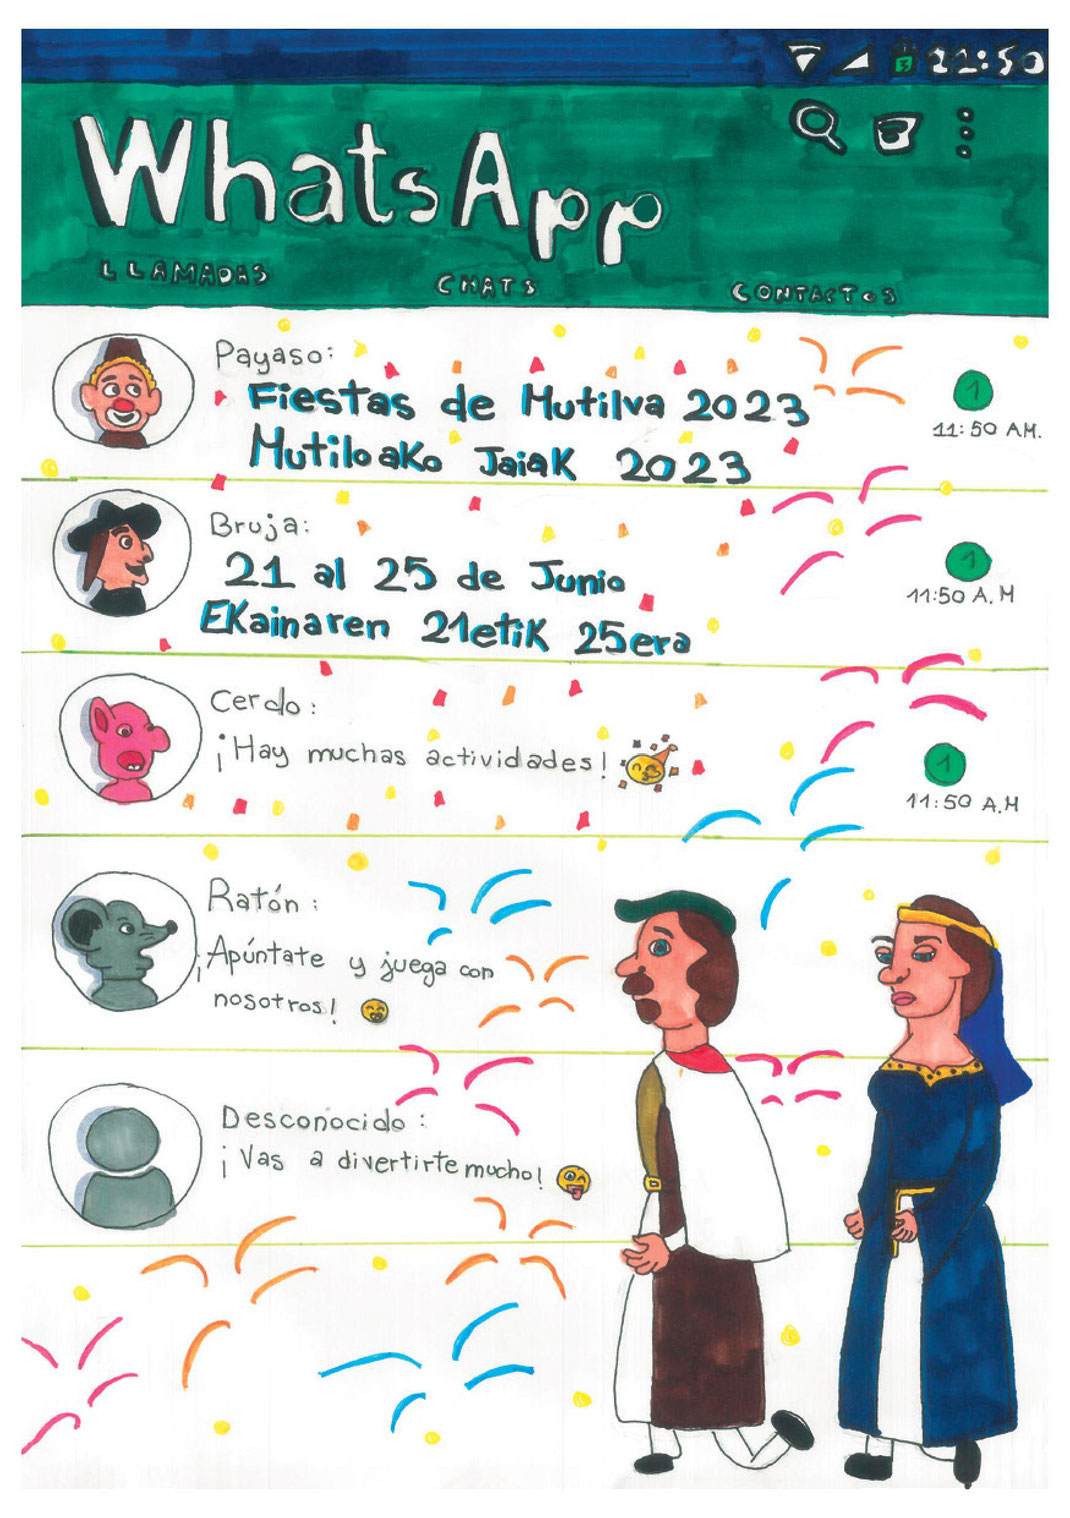 11:50
WhatsApp
LLAMADAS CHATS CONTACTOS
Payaso:
Fiestas de Mutilva 2023
Mutiloako Jaiak 2023
1
11:50 AM.
Bruja:
21 al 25 de Junio
EKainaren 21etiK 25era
1
11:50 A.M
Cerdo:
¡Hay muchas actividades!
1
11:50 A.M
Ratón:
¡Apúntate y juega con
nosotros!
Desconocido:
¡Vas a divertirte mucho!